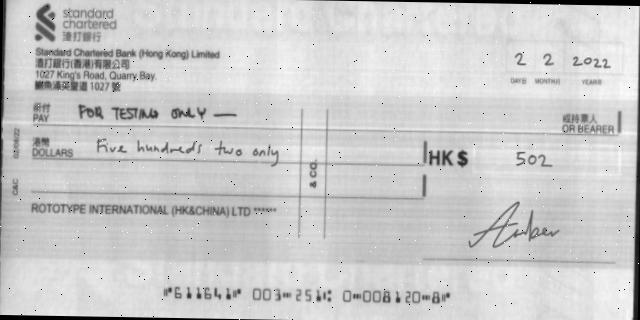 standard
chartered
渣打銀行
Standard Chartered Bank (Hong Kong) Limited
渣打銀行(香港)有限公司
1027 King's Road, Quarry Bay.
鰂魚涌英皇道 1027 號
2 2 2022
DAY日 MONTH月 YEAR年
祈付
PAY FOR TESTING ONLY —
或持票人
OR BEARER
港幣
DOLLARS Five hundreds two only
HK$ 502
& CO.
C&C
ROTOTYPE INTERNATIONAL (HK&CHINA) LTD ******
Amber
⑈611641⑈ 003⑉251⑆ 0⑉008120⑉8⑈